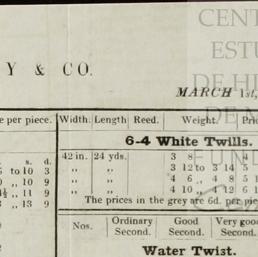 CENT
ESTU
DE HI
Y & CO.
MARCH 1st,
e per piece.
Width. Length Reed. Weight. Pri
6-4 White Twills.
s. d.
42 in. 24 yds. 3 8 4
6 to 10 3 „ „ 3 12 to 3 14 5
„ 10 9 „ „ 4 6 „ 4 8 5 1
„ 11 9 „ „ 4 10 „ 4 12 6 1
„ 13 9 The prices in the grey are 6d. per pie
Nos. Ordinary Second. Good Second. Very good Second.
Water Twist.